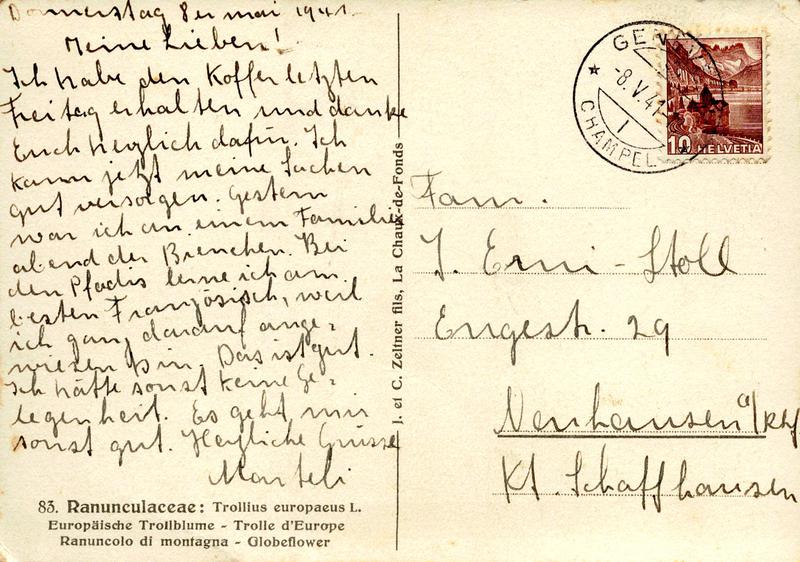 Donnerstag 8er mai 1941.
Meine Lieben!
Ich habe den Koffer letzten
Freitag erhalten und danke
Euch herzlich dafür. Ich
kann jetzt meine Sachen
gut versorgen. Gestern
war ich an einem Familien
abend der Bienchen. Bei
den Pfadis lerne ich am
besten Französisch, weil
ich ganz darauf ange=
wiesen bin. Das ist gut.
Ich hätte sonst keine Ge=
legenheit. Es geht mir
sonst gut. Herzliche Grüsse
83. Ranunculaceae: Trollius europaeus L.
Europäische Trollblume - Trolle d'Europe
Ranuncolo di montagna - Globeflower
J. et C. Zeltner fils, La Chaux-de-Fonds
GENÈVE
-8.V.41-
1
CHAMPEL
10 HELVETIA
Fam.
J. Erni-Stoll
Engestr. 29
Neuhausen a/Rhf
Kt. Schaffhausen